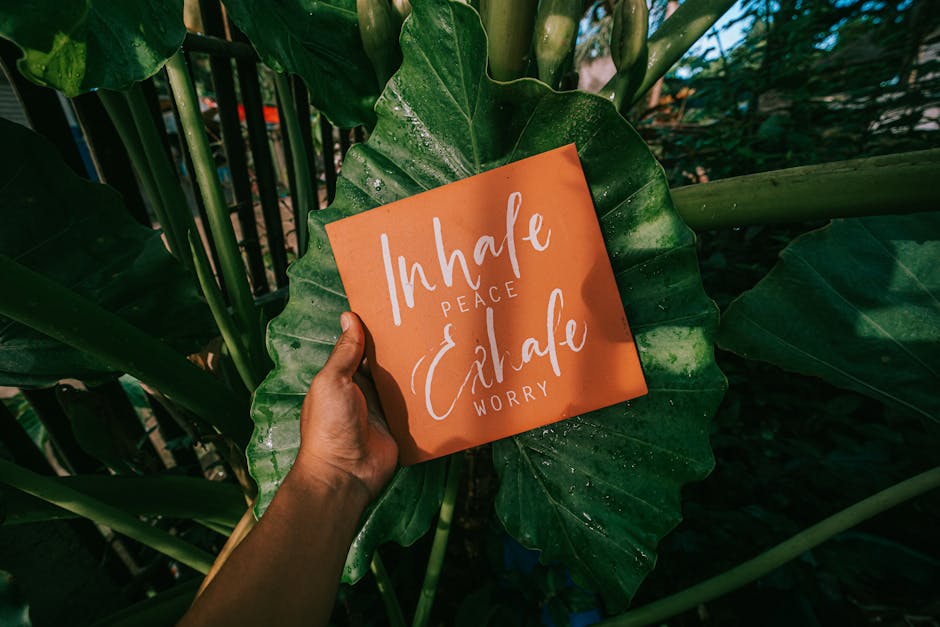 Inhale
PEACE
Exhale
WORRY